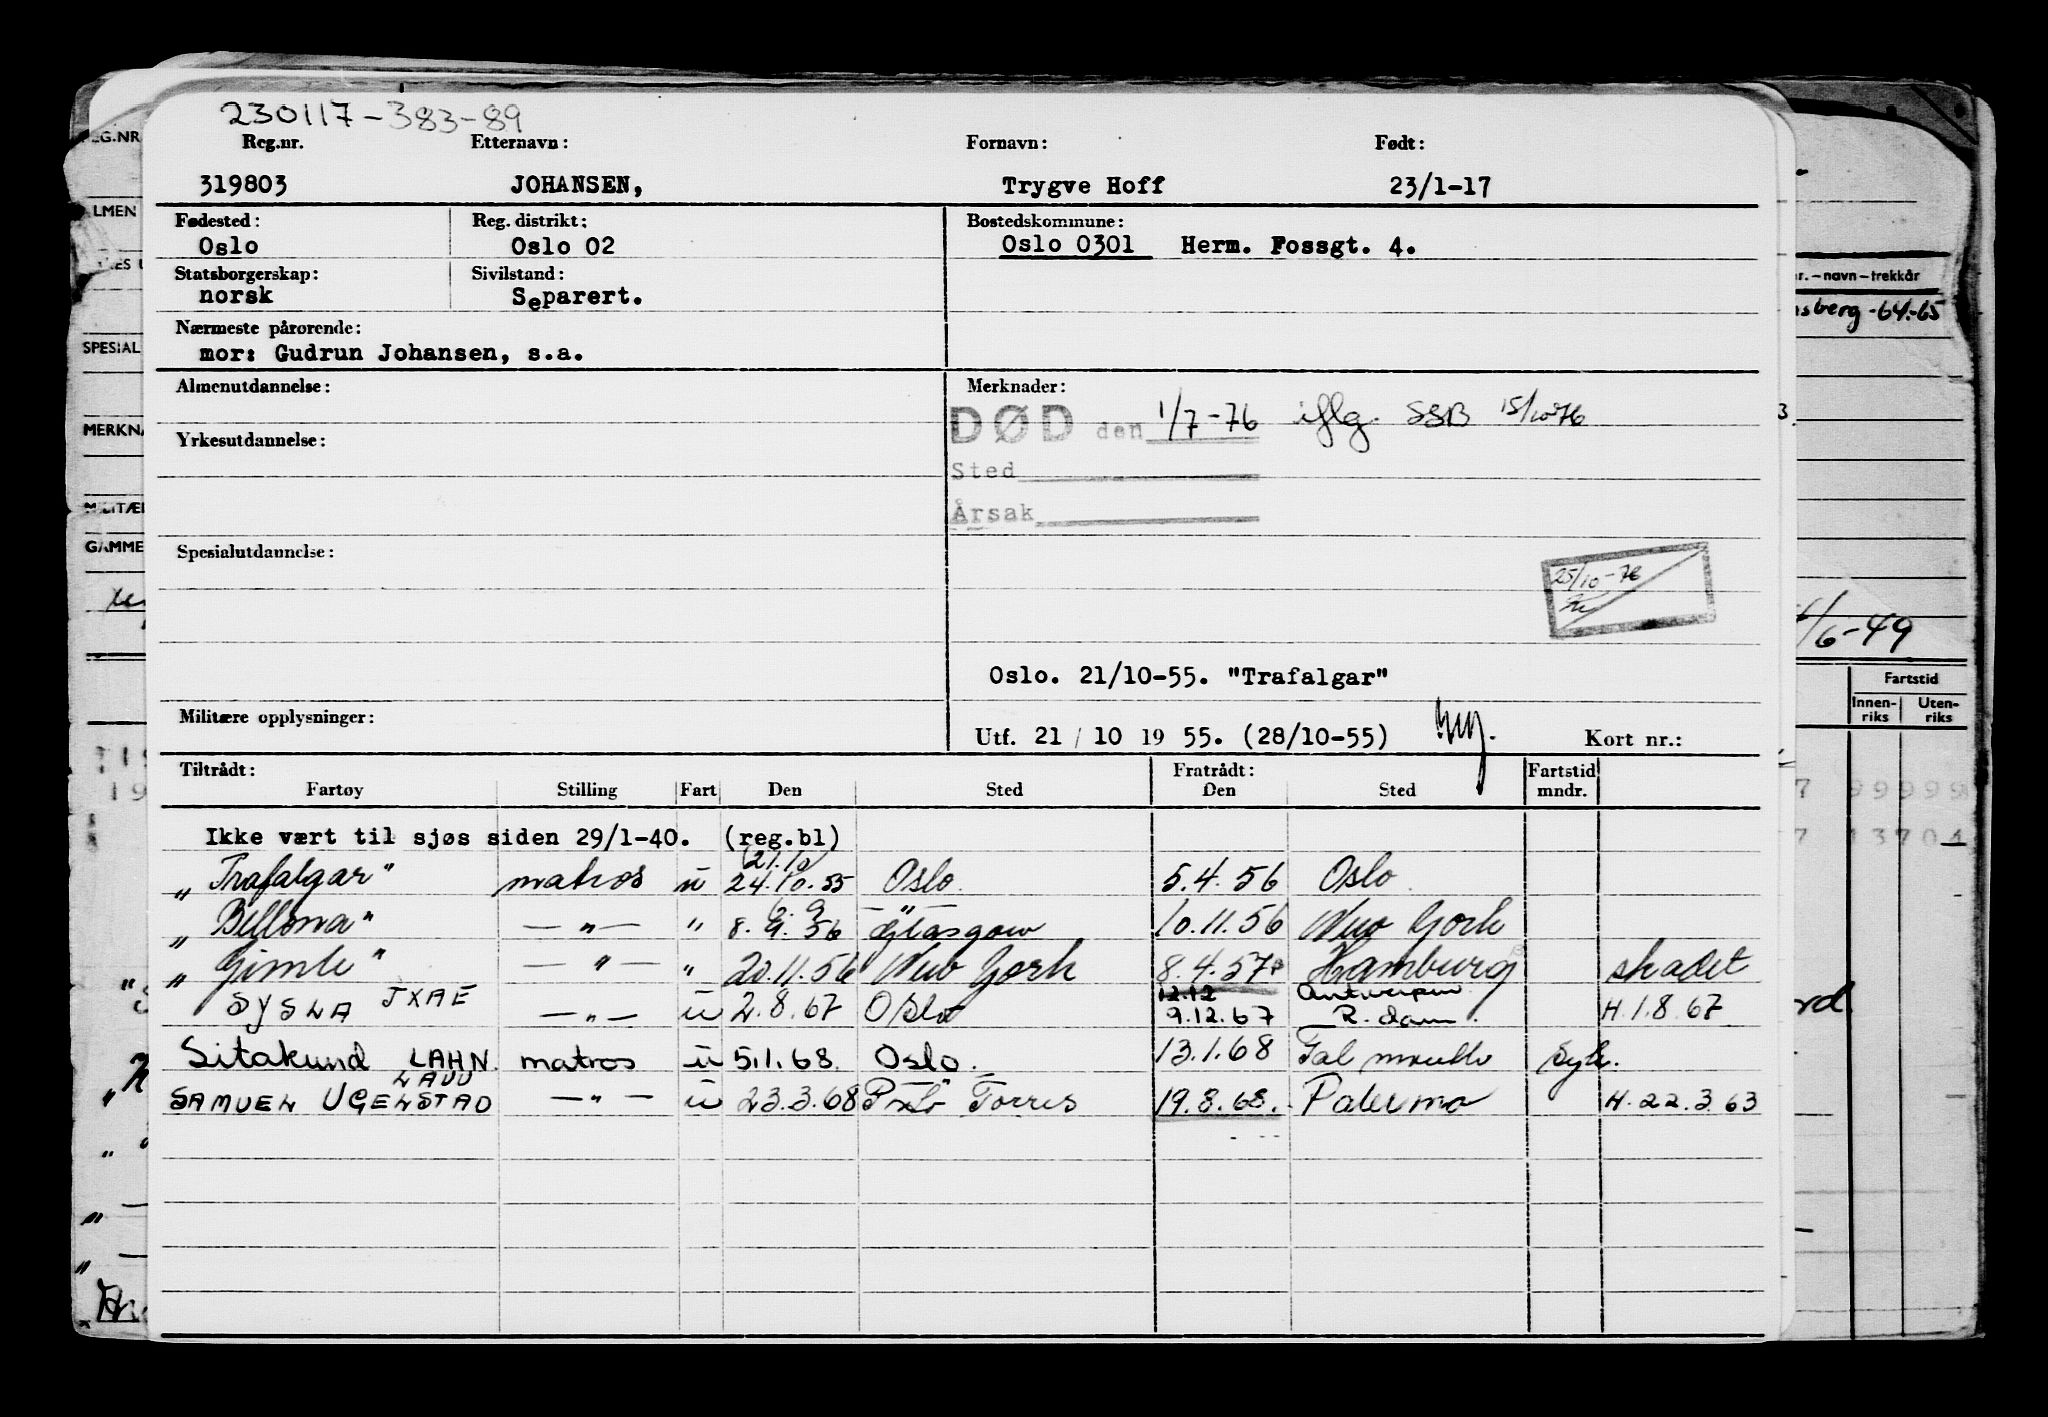 230117-383-89
Reg.nr. Etternavn: Fornavn: Født:
319803 JOHANSEN, Trygve Hoff 23/1-17
Fødested: Reg. distrikt: Bostedskommune:
Oslo Oslo 02 Oslo 0301 Herm. Fossgt. 4.
Statsborgerskap: Sivilstand:
norsk Separert.
Nærmeste pårørende:
mor: Gudrun Johansen, s.a.
Almenutdannelse: Merknader:
DØD den 1/7-76 iflg. SSB 15/10 76
Yrkesutdannelse:
Sted
Årsak
Spesialutdannelse:
25/10-76
Oslo. 21/10-55. "Trafalgar"
Militære opplysninger:
Utf. 21 / 10 19 55. (28/10-55) Kort nr.:
Tiltrådt: Fratrådt: Fartstid
Fartøy Stilling Fart Den Sted Den Sted mndr.
Ikke vært til sjøs siden 29/1-40. (reg.bl)
(21.10)
"Trafalgar" matros u 24.10.55 Oslo 5.4.56 Oslo
"Bellona" — " — " 8.9.56 Glasgow 10.11.56 New York
"Gimle" — " — " 20.11.56 New York 8.4.57 Hamburg skadet
12.12 Antwerpen
SYSLA JXAE — " — u 2.8.67 Oslo 9.12.67 R.dam. H.1.8.67
Sitakund LAHN matros u 5.1.68 Oslo 13.1.68 Syk.
LAUU
SAMUEL UGELSTAD — " — u 23.3.68 Torres 19.8.68. Palermo H.22.3.63
REG.NR
LMEN
SPESIAL
MERKNA
MILITÆR
GAMME
nr.–navn–trekkår
nsberg -64-65
3.
/6-49
Fartstid
Innen-riks Uten-riks